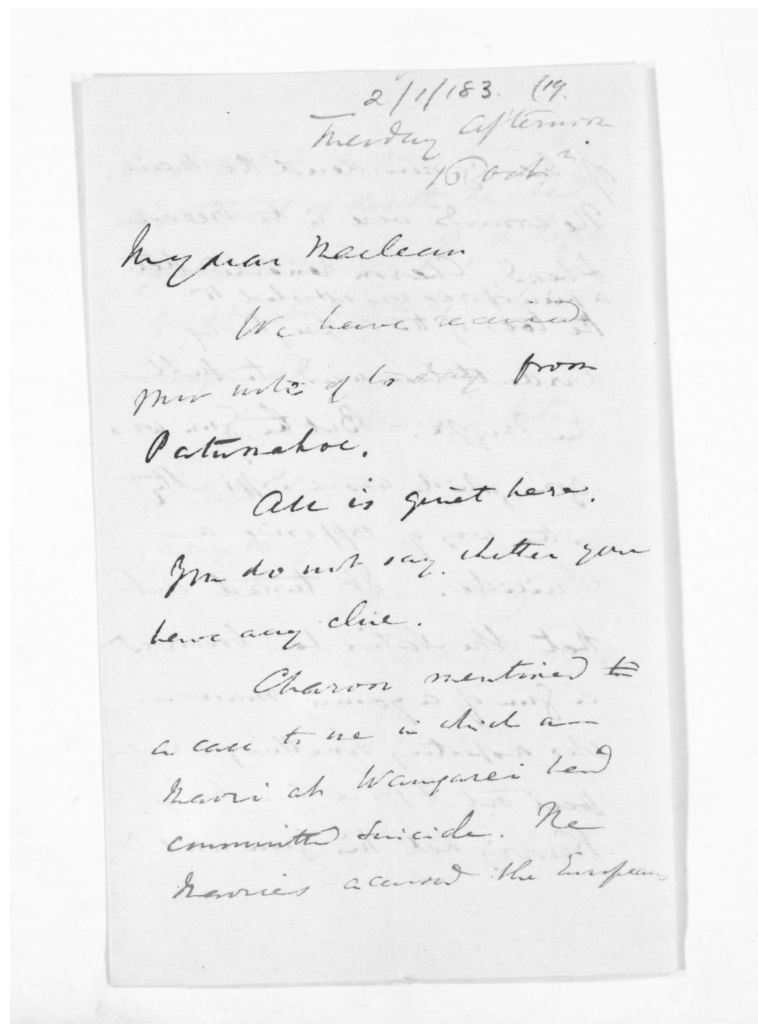 2/1/183. (19.
Tuesday afternoon
16 Octr
My dear Maclean
We have received
your note of to day from
Patumahoe.
All is quiet here.
You do not say whether you
have any clue.
Charon mentioned to
a case to me in which a
Maori at Wangarei had
committed suicide. The
Maories accused the Europeans